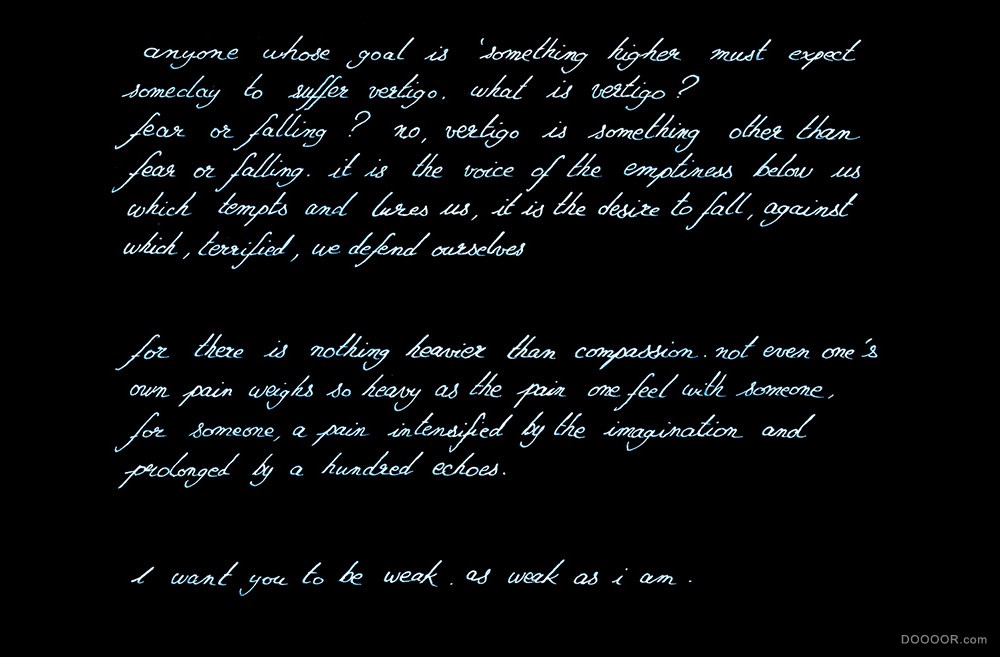 anyone whose goal is 'something higher must expect
someday to suffer vertigo. what is vertigo ?
fear or falling ? no, vertigo is something other than
fear or falling. it is the voice of the emptiness below us
which tempts and lures us, it is the desire to fall, against
which, terrified, we defend ourselves
for there is nothing heavier than compassion. not even one's
own pain weighs so heavy as the pain one feel with someone,
for someone, a pain intensified by the imagination and
prolonged by a hundred echoes.
I want you to be weak. as weak as i am.
DOOOOR.com